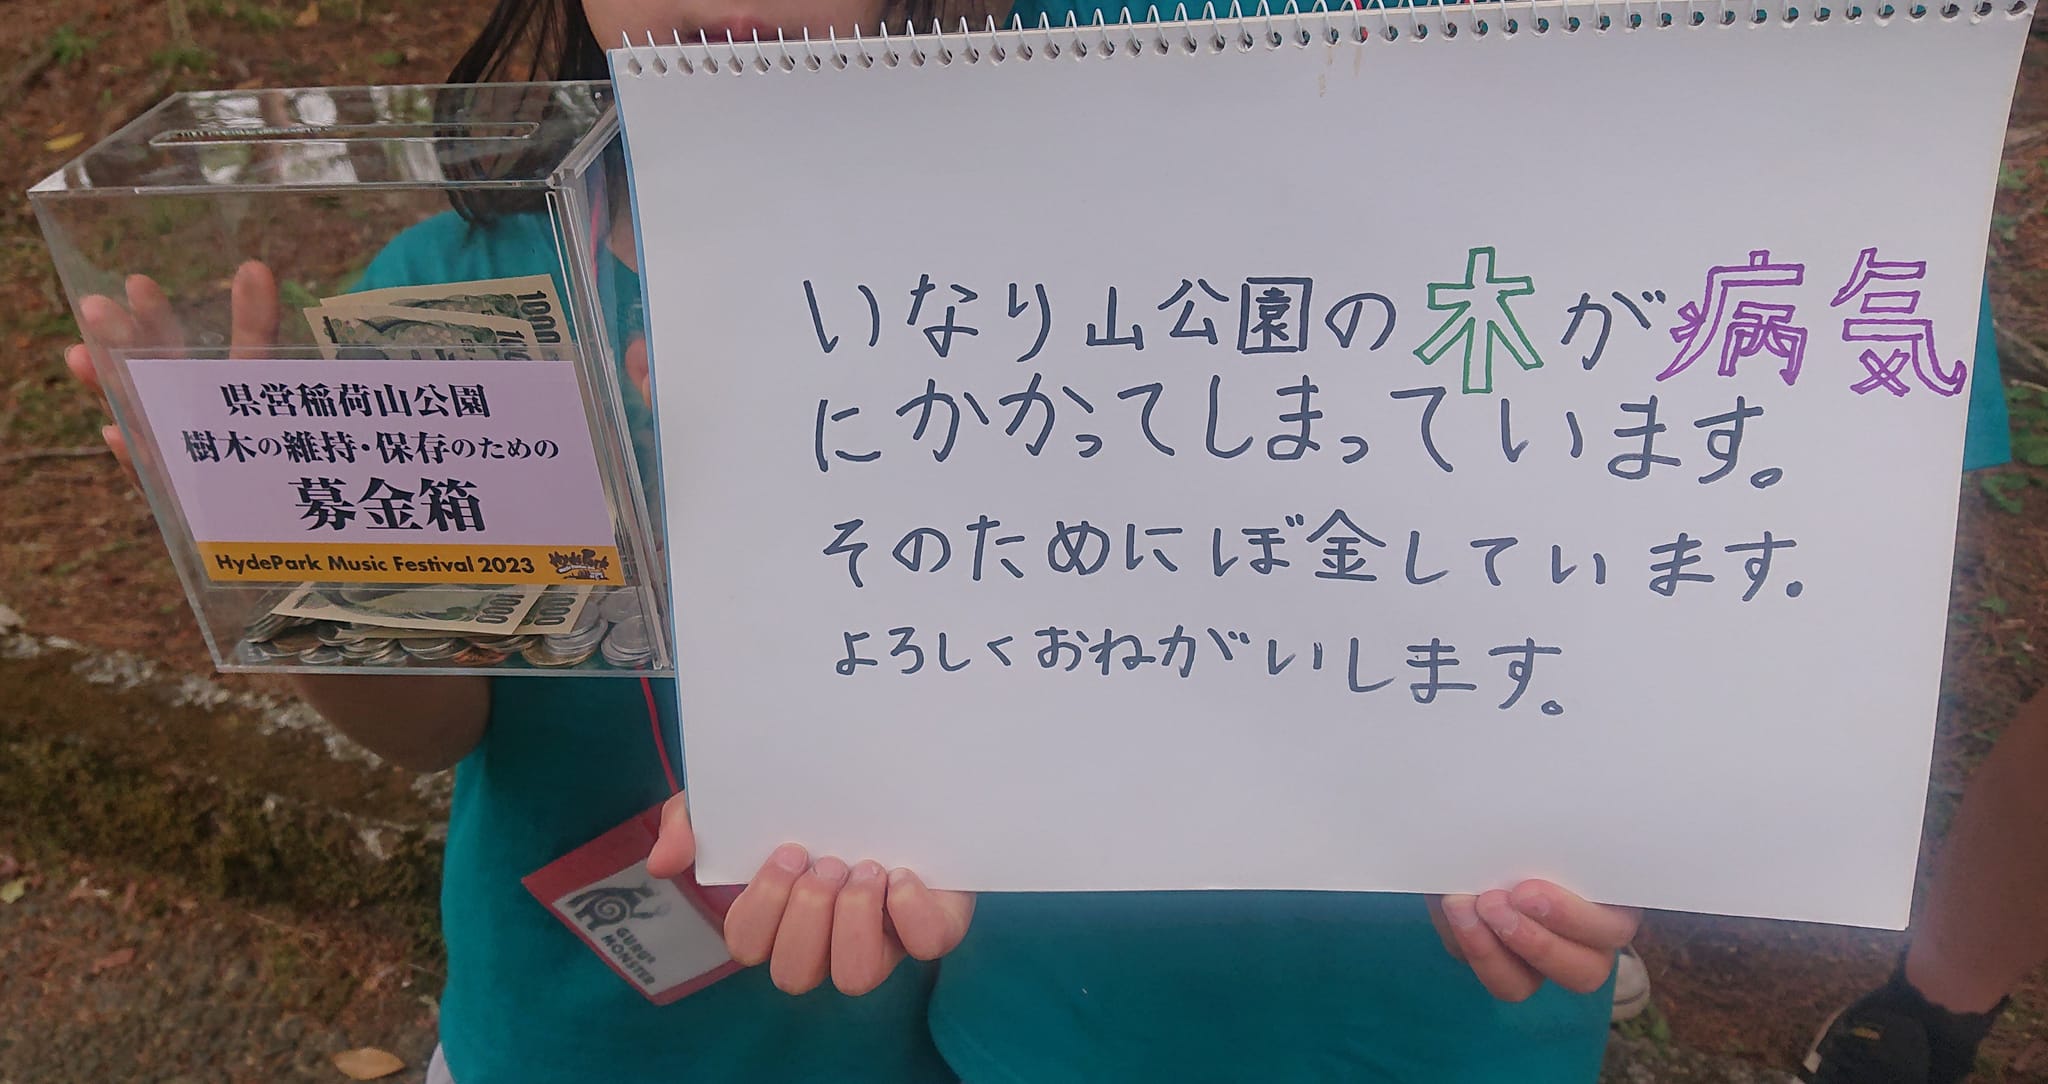 県営稲荷山公園
樹木の維持・保存のための
募金箱
HydePark Music Festival 2023
いなり山公園の木が病気
にかかってしまっています。
そのためにぼ金しています.
よろしくおねがいします。
GURU2
MONSTER
1000
1000
1000